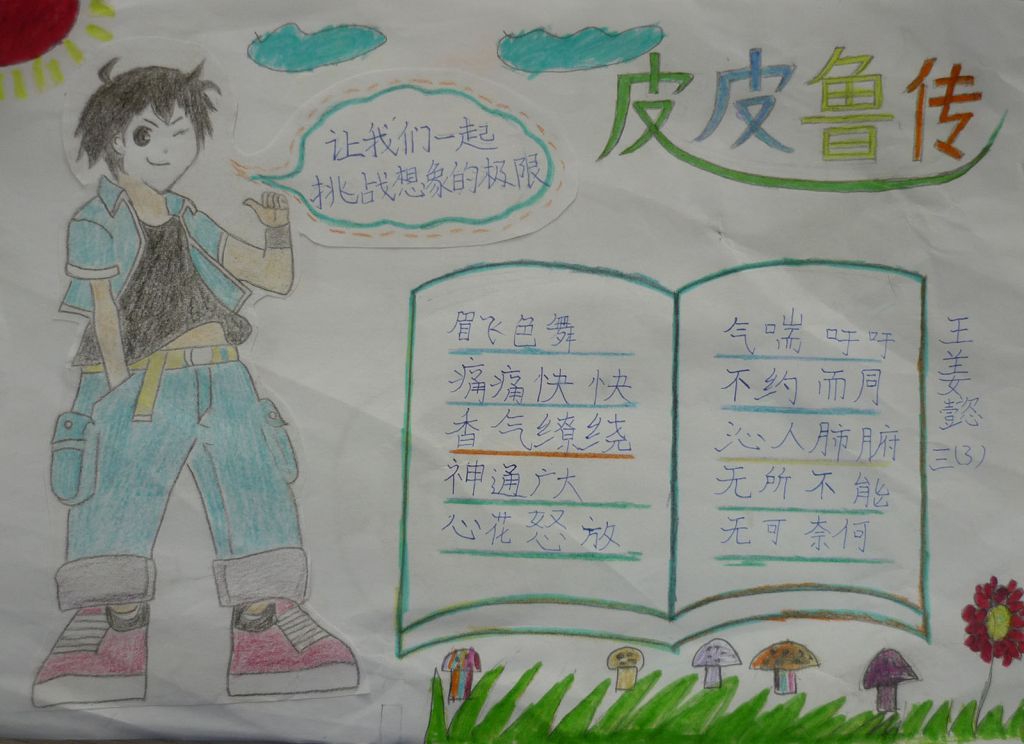 皮皮鲁传
让我们一起
挑战想象的极限
眉飞色舞
痛痛快快
香气缭绕
神通广大
心花怒放
气喘吁吁
不约而同
沁人肺腑
无所不能
无可奈何
王姜懿
三(3)